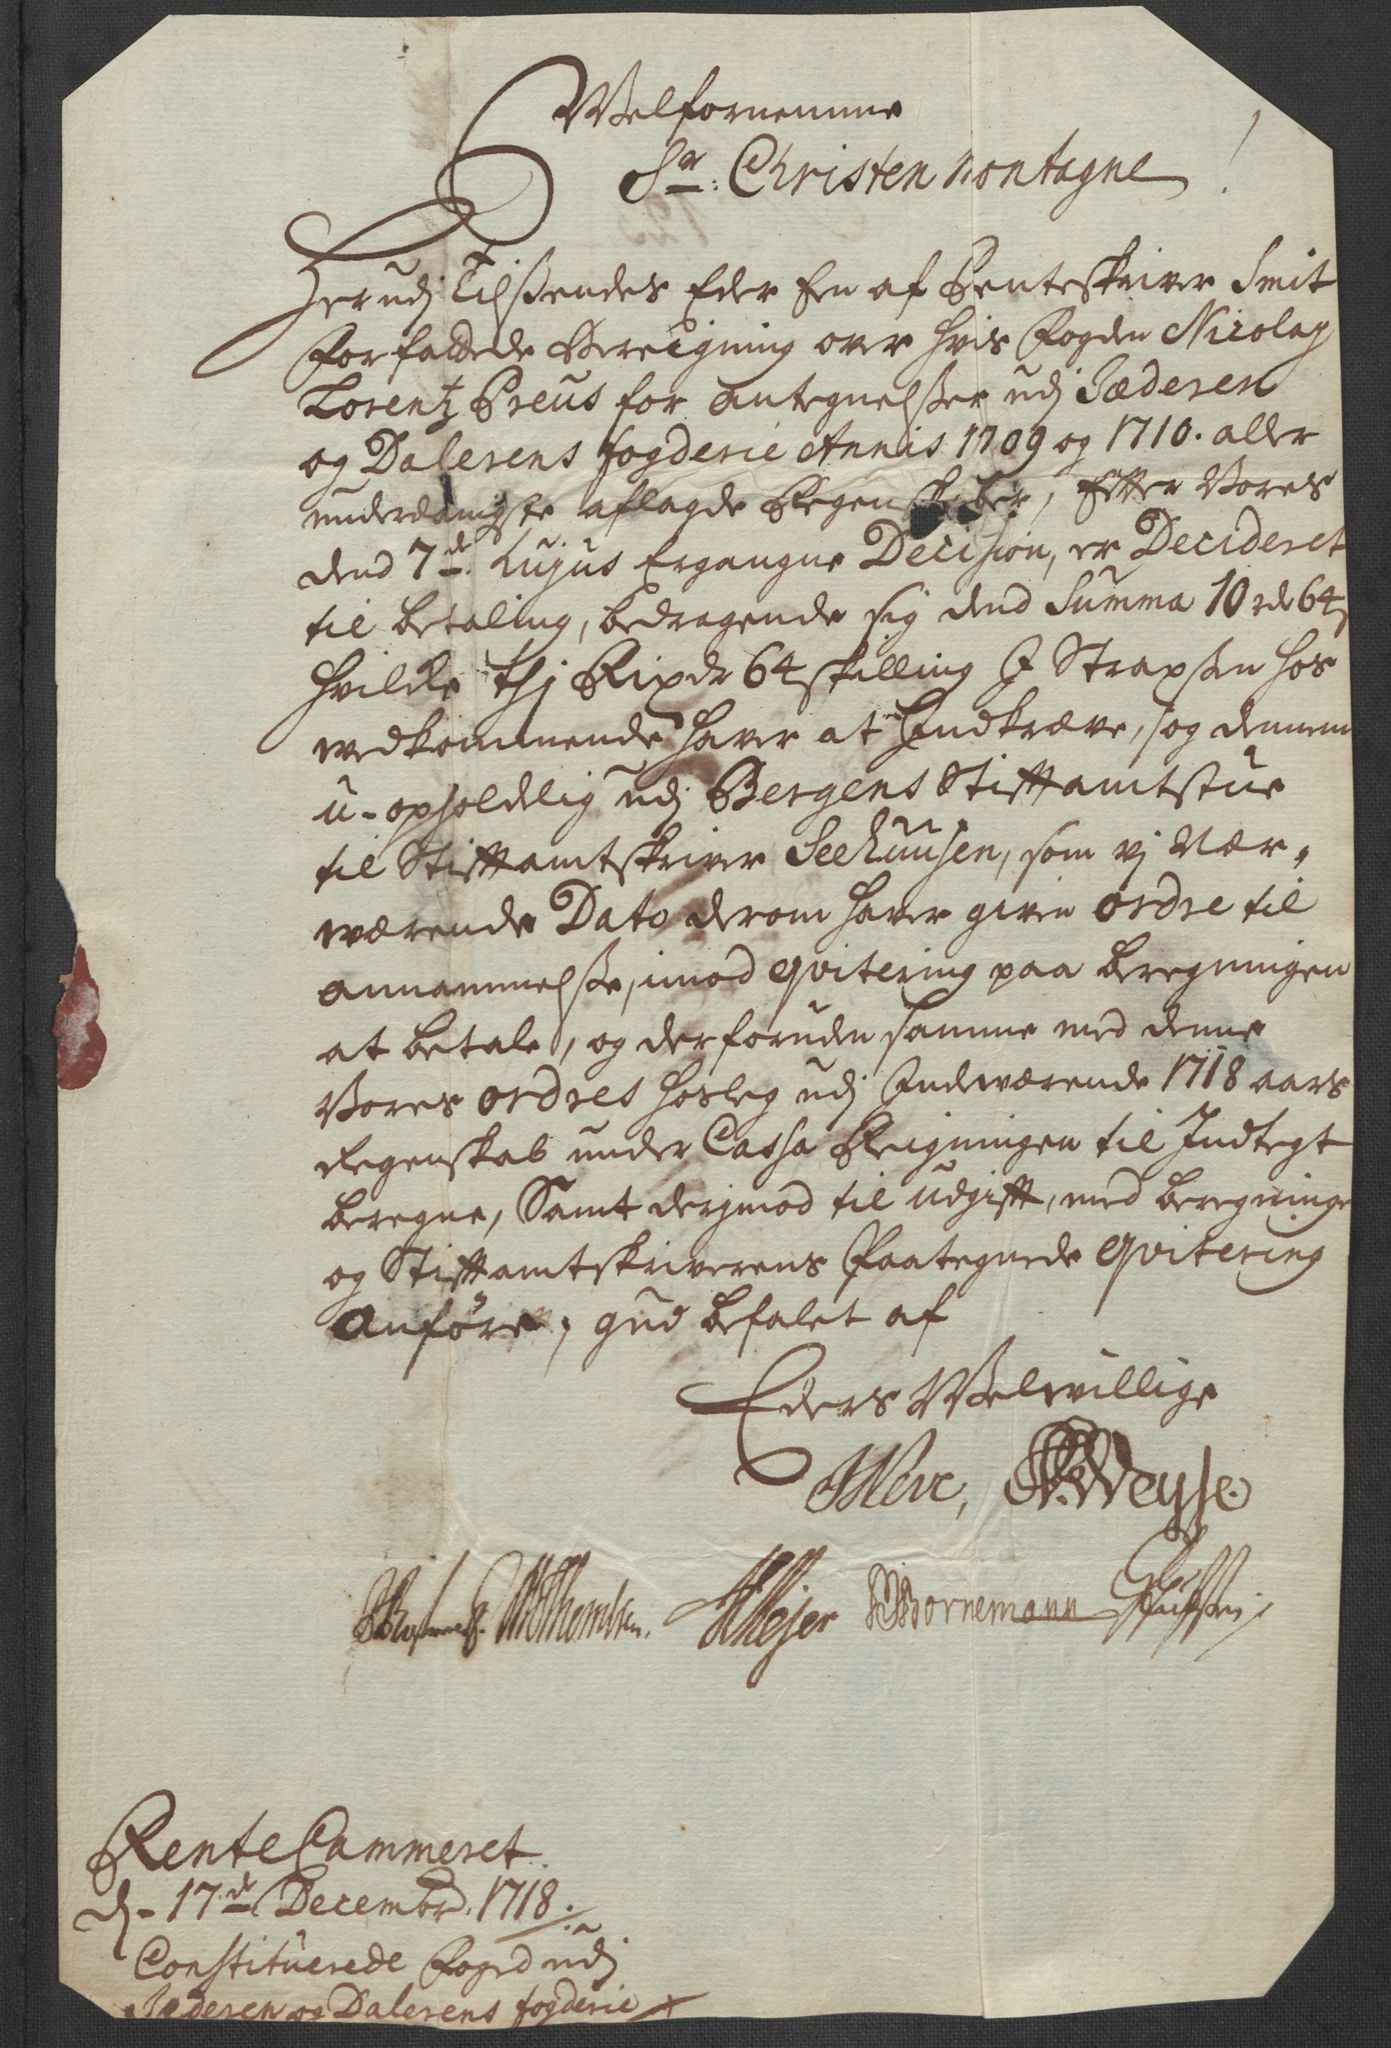 Velfornemme
Sr. Christen Montagne!
Herudj Tilsendes Eder Een af Renteskriver Smit
forfattede Bereigning over hvis Fogden Nicolay
Lorentz Preus for antegnelsser udj Jæderen
og Dalerens fogderie Annis 1709 og 1710. aller
underdanigste aflagde Regenskaber, Efter Vores
dend 7de hujus Ergangne Decision, er Decideret
til betaling, bedragende sig dend Summa 10 rd 64 s
hvilke thj Rixdr 64 skilling I Strax hos
vedkommende haver at Indkræve, og dennem
u-opholdelig udj Bergens Stiftamtstue
til Stiftamtskriver Seehuusen, som vj Nær-
værende Dato derom haver given ordre til
annammelsse, imod qvitering paa beregningen
at betale, og derforuden samme med denne
Vores ordres hosleg udj Indeværende 1718 aars
Regenskab under Cassa Reigningen til Indtegt
beregne, Samt derjmod til udgift, med beregninge
og Stiftamtskriverens Paategnede qvitering
Anføre, gud befalet af
Eders Velvillige
Weyse.
Thomsen. Meyer Bornemann
RenteCammeret
d- 17de Decembr. 1718.
Constituerede Foged udj
Jæderen og Dalerens fogderie